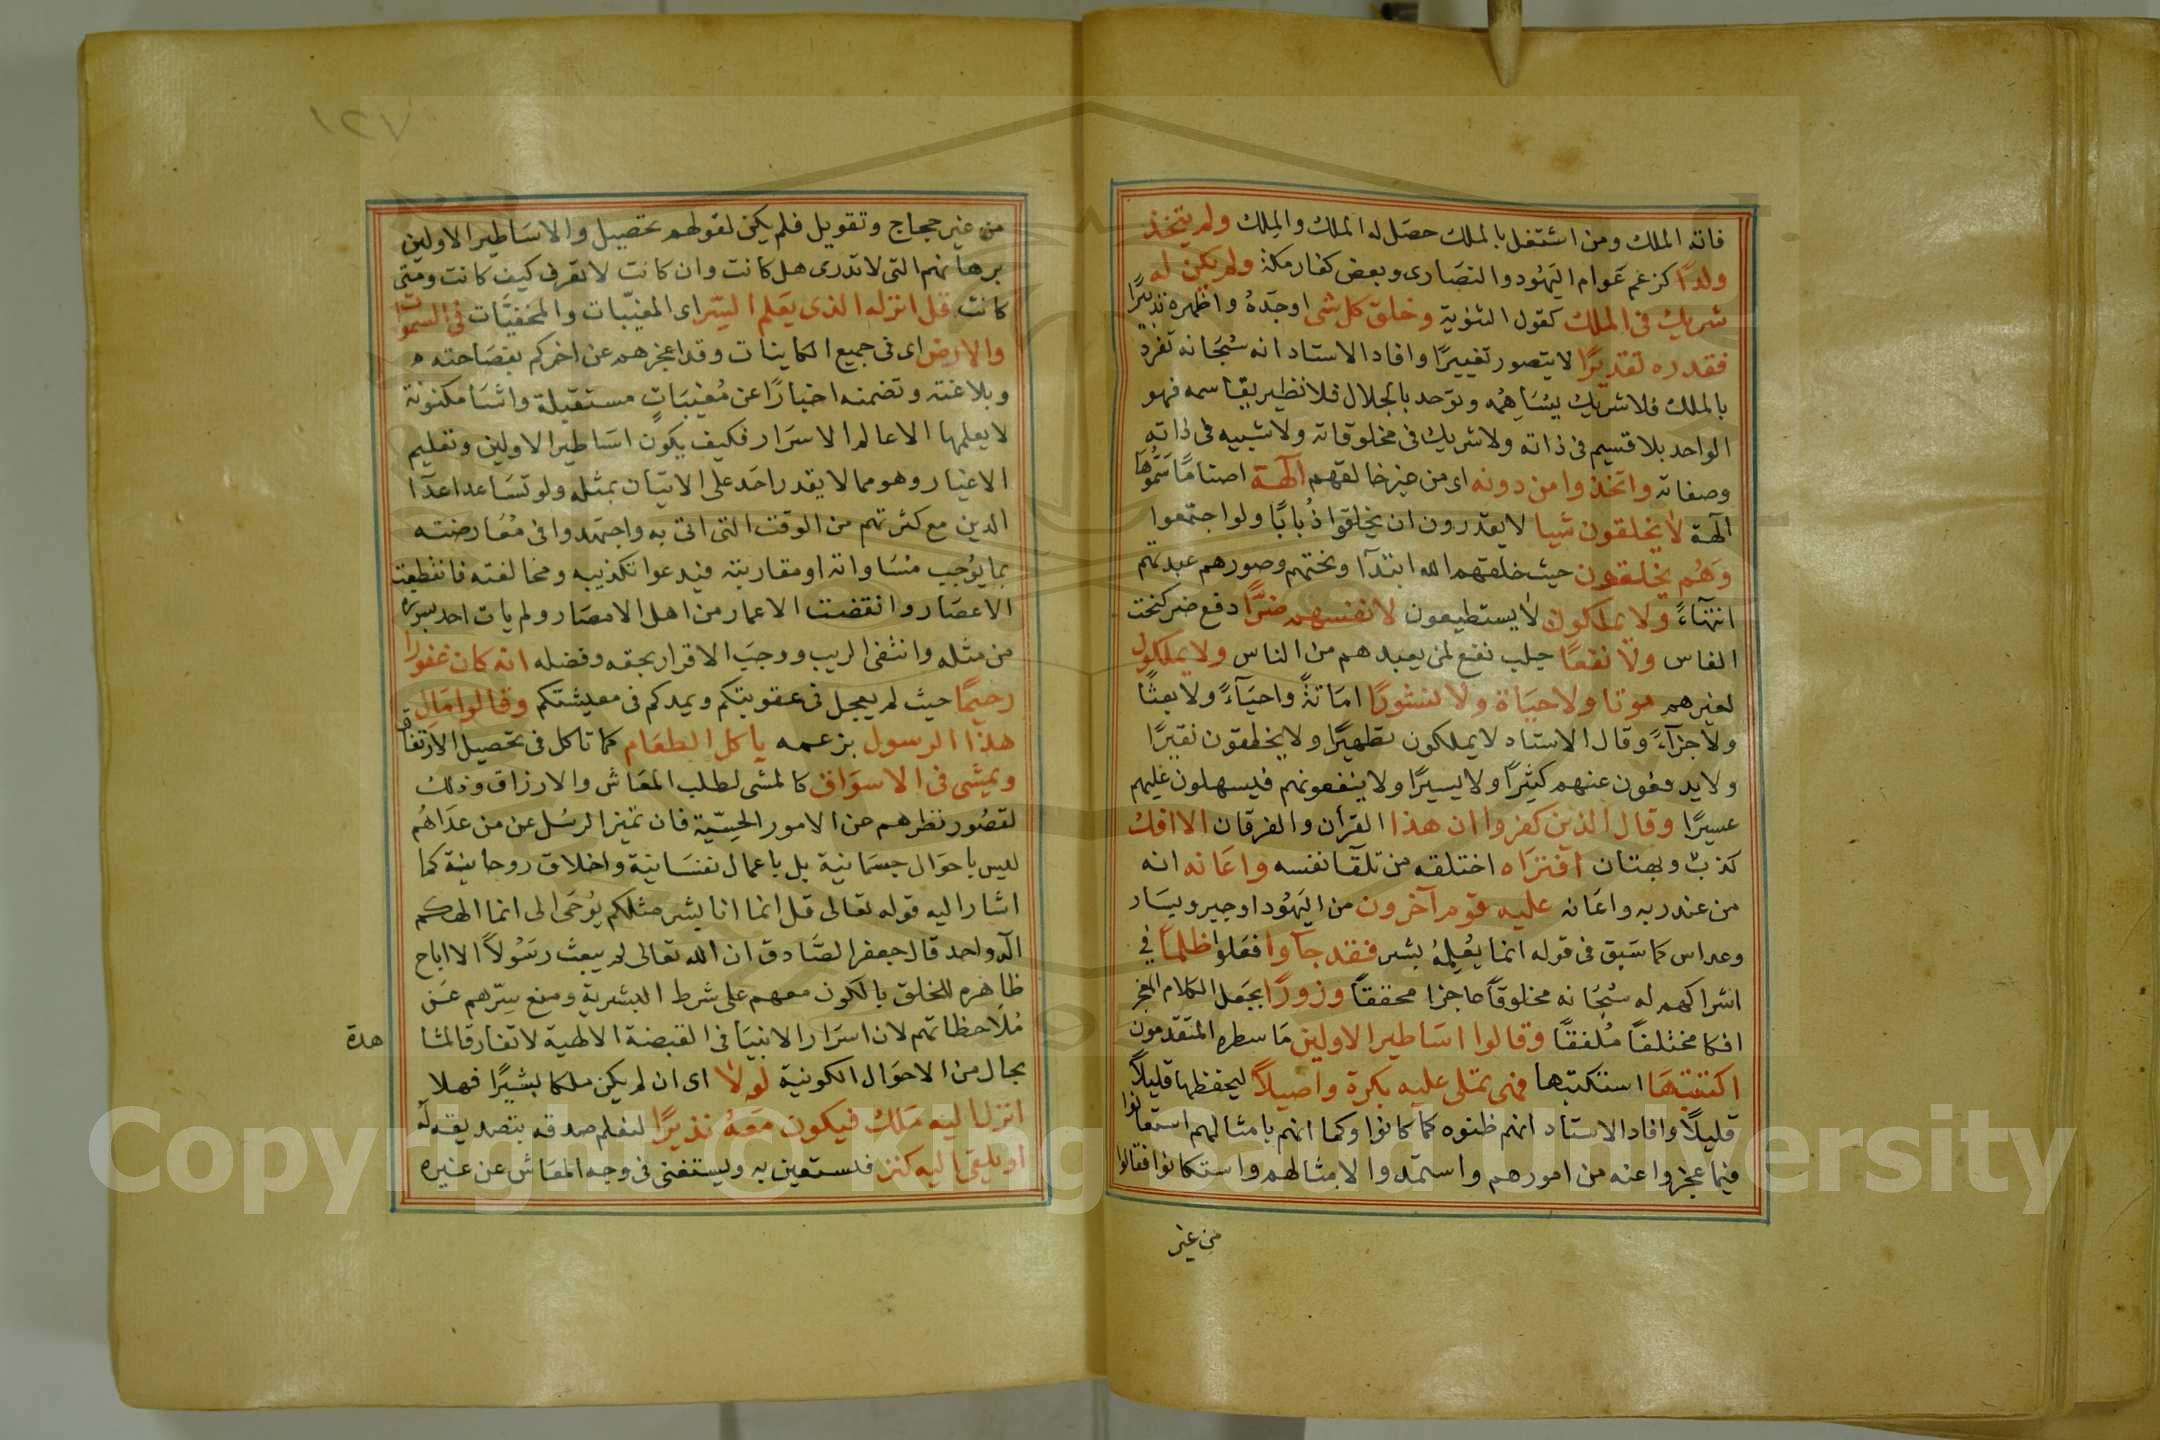 فاته الملك ومن اشتغل بالملك حصل له الملك والملك ولم يتخذ
ولدًا كزعم عوام اليهود والنصارى وبعض كفار مكة ولم يكن له
شريك فى الملك كقول الثنوية وخلق كل شى اوجده واظهره تدبيرًا
فقدره تقديرًا لا يتصور تغييرًا وافاد الاستاد انه سبحانه تفرد
بالملك فلا شريك يساهمه وتوحد بالجلال فلا نظير يقاسمه فهو
الواحد بلا قسيم فى ذاته ولا شريك فى مخلوقاته ولا شبيه فى ذاته
وصفاته واتخذوا من دونه اى من غير خالقهم آلهة اصنامًا سموها
آلهة لا يخلقون شيا لا يقدرون ان يخلقوا ذبابًا ولو اجتمعوا
وهم يخلقون حيث خلقهم الله ابتدآ ونختهم وصورهم عبدتهم
انتهآءً ولا يملكون لا يستطيعون لانفسهم ضرًّا دفع ضر كنحت
الفاس ولا نفعًا جلب نفع لمن يعبدهم من الناس ولا يملكون
لغيرهم موتا ولا حياة ولا نشورًا اماتةً واحيآءً ولا بعثًا
ولا جزآءً وقال الاستاد لا يملكون قطميرًا ولا يخلقون نقيرًا
ولا يدفعون عنهم كثيرًا ولا يسيرًا ولا ينفعونهم فيسهلون عليهم
عسيرًا وقال الذين كفروا ان هذا القرأن والفرقان الا افك
كذب وبهتان آفتراه اختلقه من تلقآ نفسه واعانه انه
من عند ربه واعانه عليه قوم آخرون من اليهود او جبر ويسار
وعداس كما سبق فى قوله انما يعلمه بشر فقد جآوا فعلوا ظلمًا في
اشراكهم له سبحانه مخلوقًا عاجزا محققًا وزورًا بجعل الكلام المعجز
افكا مختلفًا ملفقًا وقالوا اساطير الاولين ما سطره المتقدمون
اكتتبها استكتبها فهى تملى عليه بكرة واصيلاً ليحفظها قليلاً
قليلاً وافاد الاستاد انهم ظنوه كما كانوا وكما انهم بامثالهم استعانوا
فيما عجزوا عنه من امورهم واستمدوا لامثالهم واستكانوا فقالوا
من غير
١٢٧
من غير حجاج وتقويل فلم يكن لقولهم تحصيل والاساطير الاولين
برهانهم التى لا تدرى هل كانت وان كانت لا تعرف كيف كانت ومتى
كانت قل انزله الذى يعلم السر اى المغيبات والمخفيات فى السموات
والارض اى فى جميع الكاينات وقد اعجزهم عن اخركم بفصاحته
وبلاغته وتضمنه اخبارًا عن مغيبات مستقبلة واشيا مكنونة
لا يعلمها الا عالم الاسرار فكيف يكون اساطير الاولين وتعليم
الاغيار وهو مما لا يقدر احد على الاتيان بمثله ولو تساعد اعدآ
الدين مع كثرتهم من الوقت التى اتى به واجتهدوا فى معارضته
بما يوجب مساواته او مقاربته فيدعوا تكذيبه ومخالفته فانقطعت
الاعصار وانقضت الاعمار من اهل الامصار ولم يات احد بسورة
من مثله وانتفى الريب ووجب الاقرار بحقه وفضله انه كان غفورا
رحيمًا حيث لم يعجل فى عقوبتكم ويمدكم فى معيشتكم وقالوا مال
هذا الرسول بزعمه ياكل الطعام كما تاكل فى تحصيل الارتفاق
ويمشى فى الاسواق كالمشى لطلب المعاش والارزاق وذلك
لقصور نظرهم عن الامور الحسّية فان تميز الرسل عن من عداهم
ليس باحوال جسمانية بل باعمال نفسانية واخلاق روحانية كما
اشار اليه قوله تعالى قل انما انا بشر مثلكم يوحى الى انما الهكم
اله واحد قال جعفر الصادق ان الله تعالى لم يبعث رسولاً الا اباح
ظاهره للخلق بالكون معهم على شرط البشرية ومنع سرّهم عن
ملاحظاتهم لان اسرار الانبيا فى القبضة الالهية لا تفارق المشا
هدة
بحال من الاحوال الكونية لولا اى ان لم يكن ملكا بشيرًا فهلا
انزل اليه ملك فيكون معه نذيرًا لنعلم صدقه بتصديقه له
او يلقى اليه كنز فيستعين به ويستغنى فى وجه المعاش عن غيره
Copyright © King Saud University